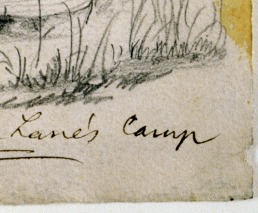 Lane's Camp